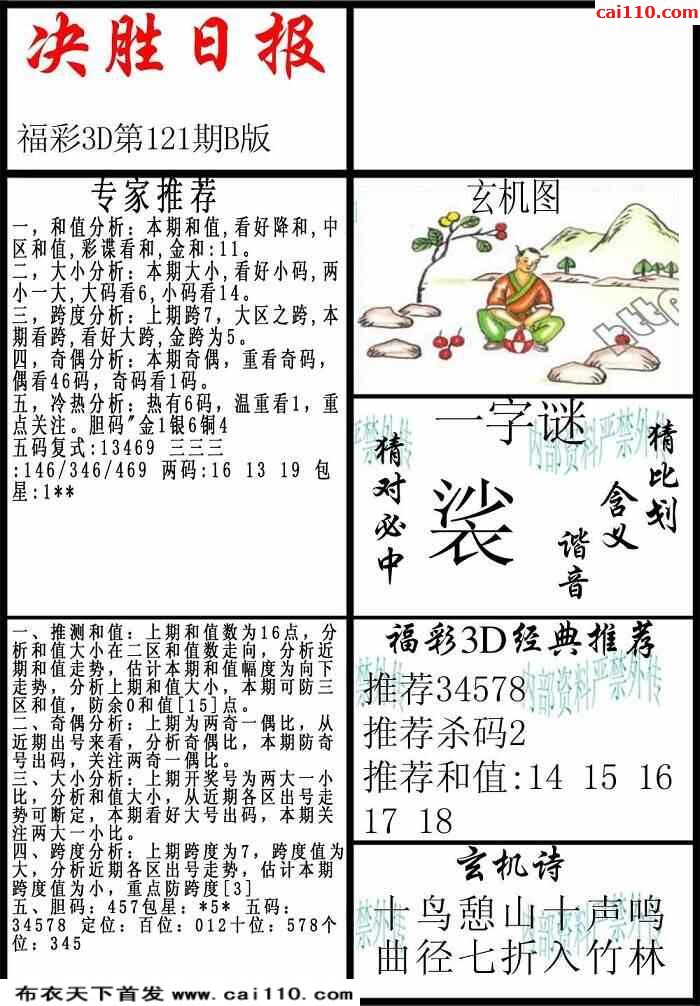 cai110.com
决胜日报
福彩3D第121期B版
专家推荐
一,和值分析:本期和值,看好降和,中
区和值,彩谍看和,金和:11。
二,大小分析:本期大小,看好小码,两
小一大,大码看6,小码看14。
三,跨度分析:上期跨7,大区之跨,本
期看跨,看好大跨,金跨为5。
四,奇偶分析:本期奇偶,重看奇码,
偶看46码,奇码看1码。
五,冷热分析:热有6码,温重看1,重
点关注。胆码"金1银6铜4
五码复式:13469 三三三
:146/346/469 两码:16 13 19 包
星:1**
玄机图
http
一字谜
猜对必中
裟
谐音
含义
猜比划
内部资料严禁外传
一、推测和值:上期和值数为16点,分
析和值大小在二区和值数走向,分析近
期和值走势,估计本期和值幅度为向下
走势,分析上期和值大小,本期可防三
区和值,防余0和值[15]点。
二、奇偶分析:上期为两奇一偶比,从
近期出号来看,分析奇偶比,本期防奇
号出码,关注两奇一偶比。
三、大小分析:上期开奖号为两大一小
比,分析和值大小,从近期各区出号走
势可断定,本期看好大号出码,本期关
注两大一小比。
四、跨度分析:上期跨度为7,跨度值为
大,分析近期各区出号走势,估计本期
跨度值为小,重点防跨度[3]
五、胆码:457包星:*5* 五码:
34578 定位:百位:012十位:578个
位:345
福彩3D经典推荐
推荐34578
推荐杀码2
推荐和值:14 15 16
17 18
内部资料严禁外传
玄机诗
十鸟憩山十声鸣
曲径七折入竹林
布衣天下首发 www.cai110.com